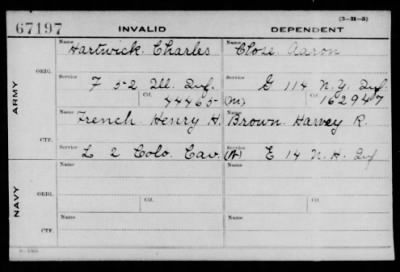 (3-21-5)
67197 INVALID DEPENDENT
Name Hartwick, Charles Name Close Aaron
ORIG. Service F 52 Ill. Inf. Service G 114 N.Y. Inf.
ARMY Ctf. 44465 (M) Ctf. 162947
Name French Henry H. Name Brown Harvey R.
CTF. Service L 2 Colo. Cav. Service E 14 N.H. Inf
Name Name
ORIG. Service Ctf. Service Ctf.
NAVY
Name Name
CTF. Service Service